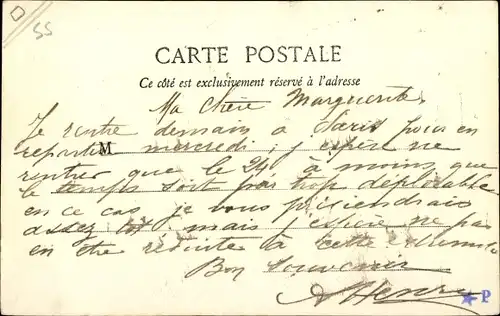 55
CARTE POSTALE
Ce côté est exclusivement réservé à l'adresse
Ma chère Marguerite,
Je rentre demain à Paris pour en
M
repartir mercredi; j'espère ne
rentrer que le 24 à moins que
le temps soit par trop déplorable
en ce cas je vous préviendrais
assez tôt mais j'espère ne pas
en être réduite à cette extrémité
Bon souvenir
Henry
P